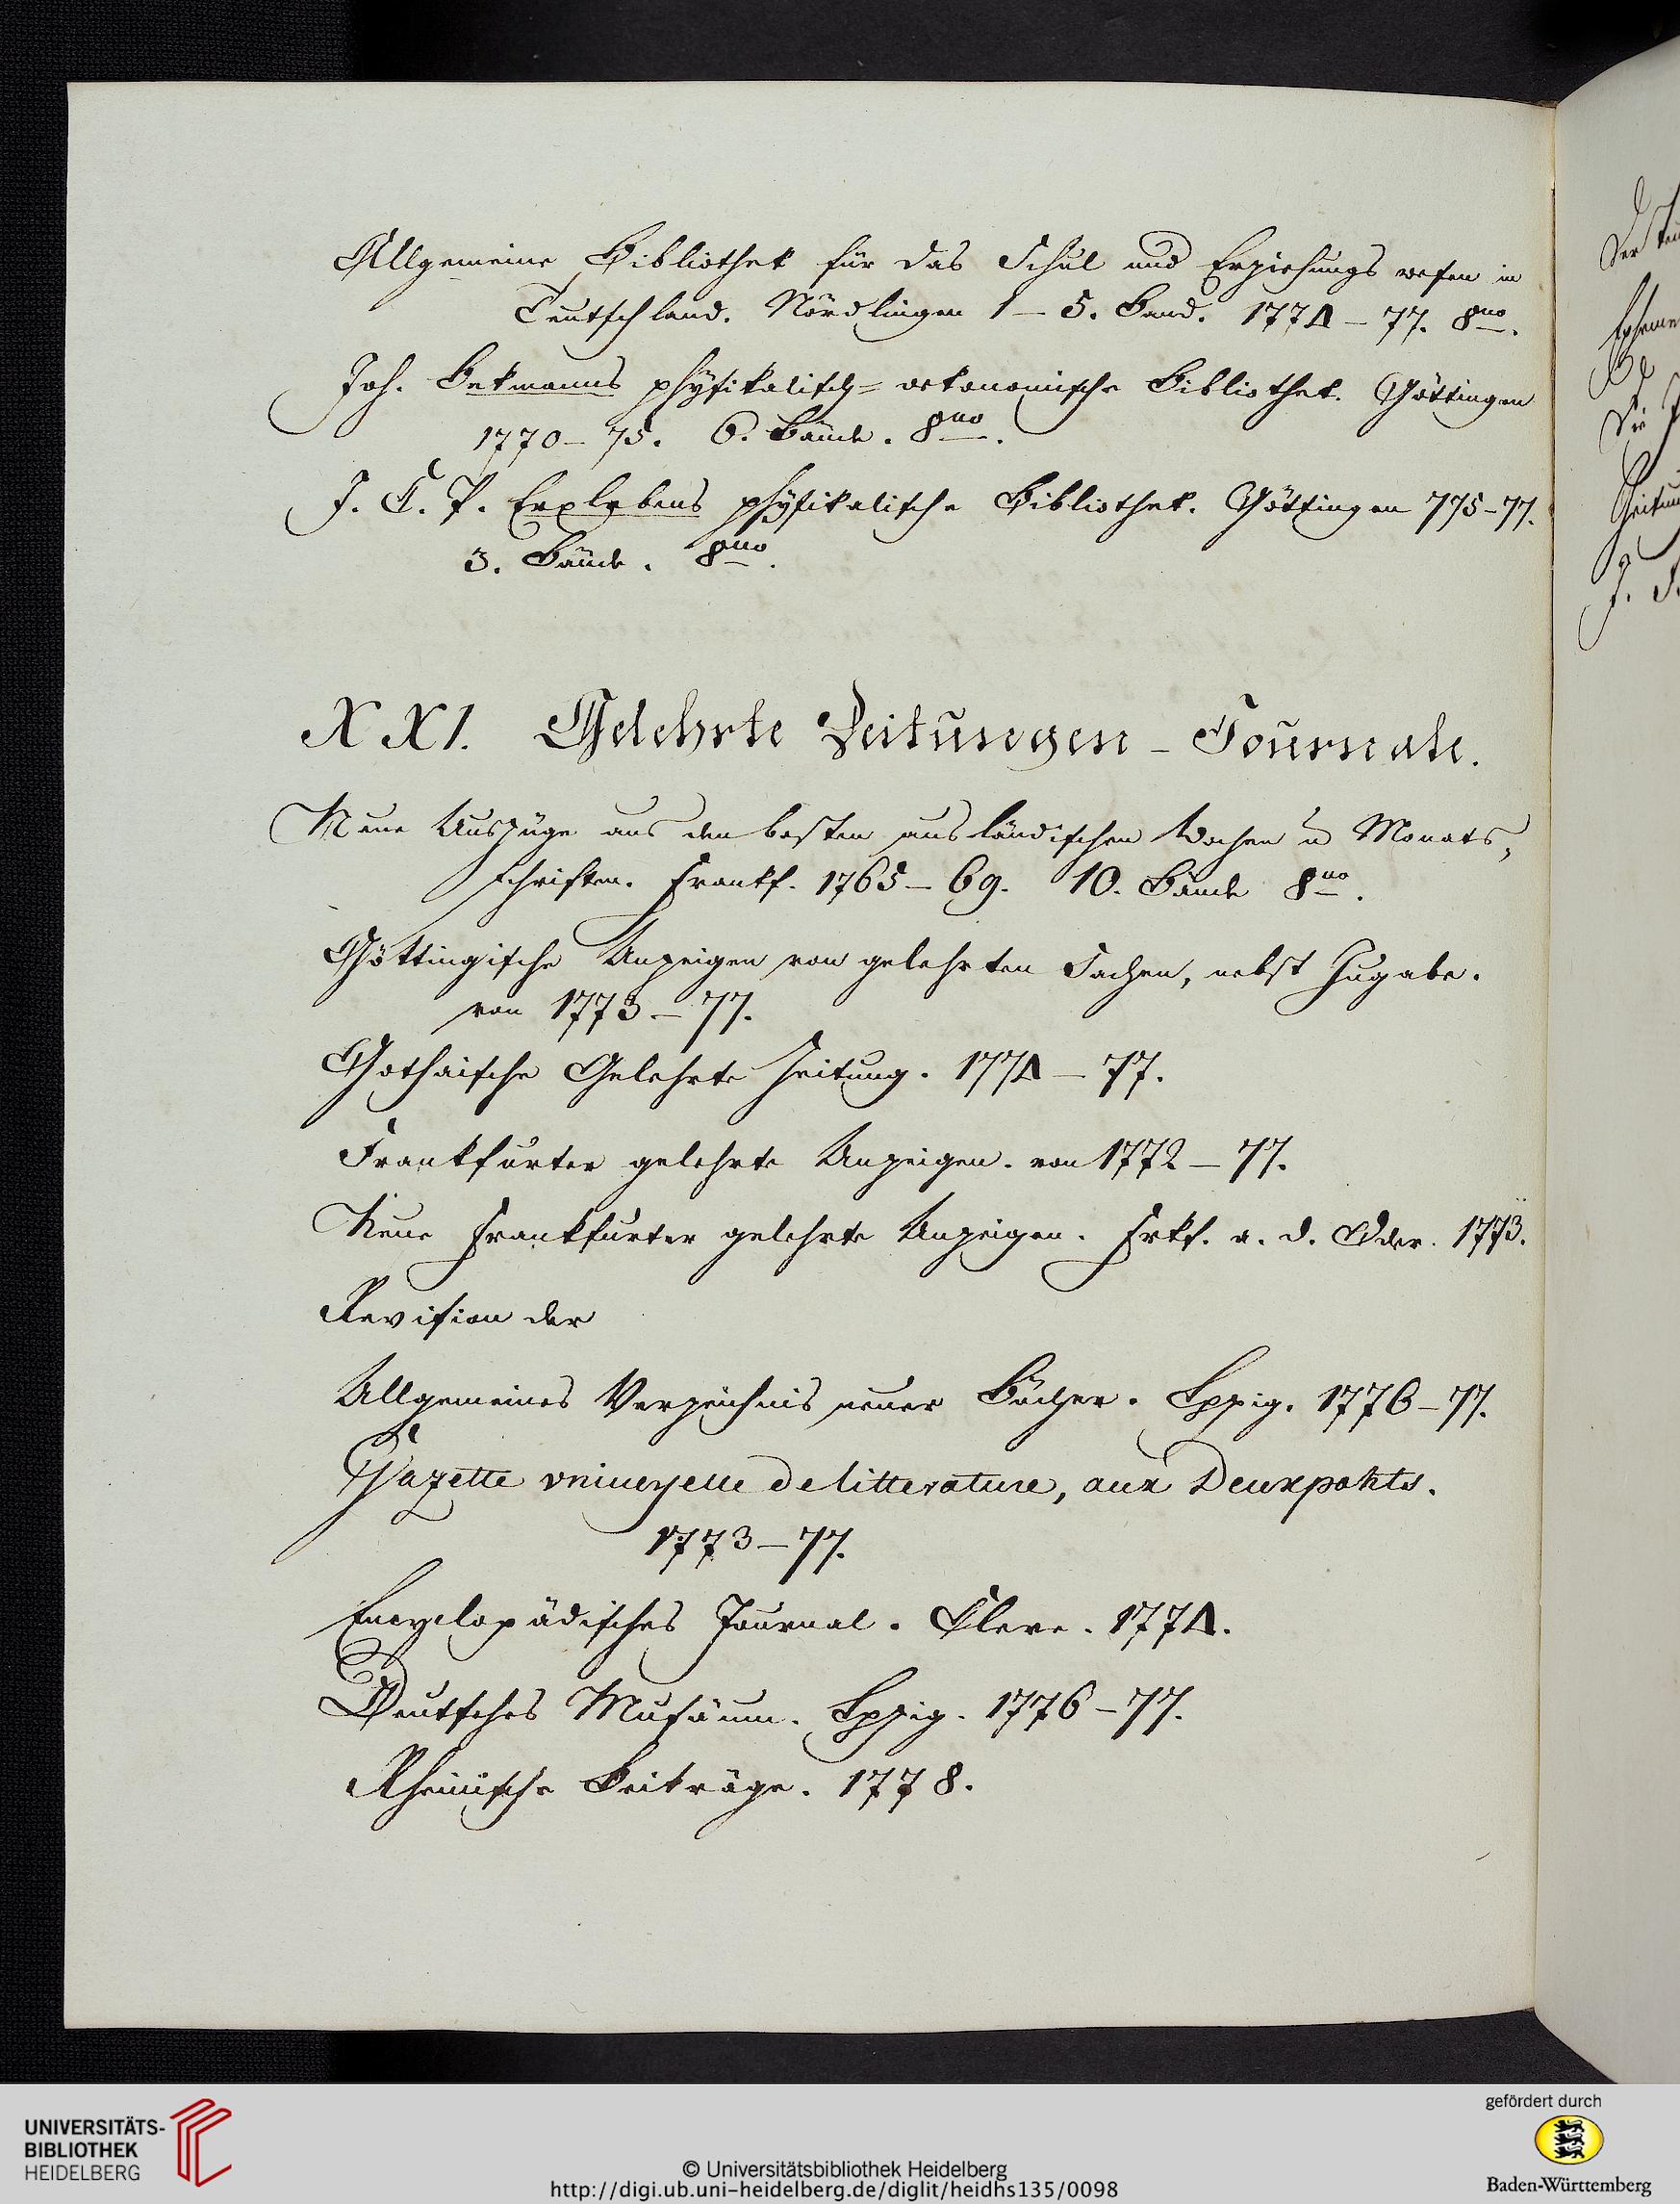 Allgemeine Bibliothek für das Schul und Erziehungs wesen in
Teutschland. Nördlingen 1 – 5. Band. 1774 – 77. 8no.
Joh. Bekmanns physikalisch = oekonomische Bibliothek. Göttingen
1770 – 75. 6. Bände. 8no.
J. C. P. Erxlebens physikalische Bibliothek. Göttingen 775–77.
3. Bände. 8no.
XXI. Gelehrte Zeitungen – Journale.
Neue Auszüge aus den besten ausländischen Wochen u Monats,
schriften. Frankf. 1765 – 69. 10. Bände 8no.
Göttingische Anzeigen von gelehrten Sachen, nebst Zugabe.
von 1773 – 77.
Gothaische Gelehrte Zeitung. 1774 – 77.
Frankfurter gelehrte Anzeigen. von 1772 – 77.
Neue Frankfurter gelehrte Anzeigen. Frkf. a. d. Oder. 1773.
Revision der
Allgemeines Verzeichnis neuer Bücher. Lpzig. 1776–77.
Gazette vniuerselle de litterature, aux Deuxponts.
1773 – 77.
Encyclopädisches Journal. Cleve. 1774.
Deutsches Musäum. Lpzig. 1776 – 77.
Rheinische Beiträge. 1778.
UNIVERSITÄTS-
BIBLIOTHEK
HEIDELBERG
© Universitätsbibliothek Heidelberg
http://digi.ub.uni-heidelberg.de/diglit/heidhs135/0098
gefördert durch
Baden-Württemberg